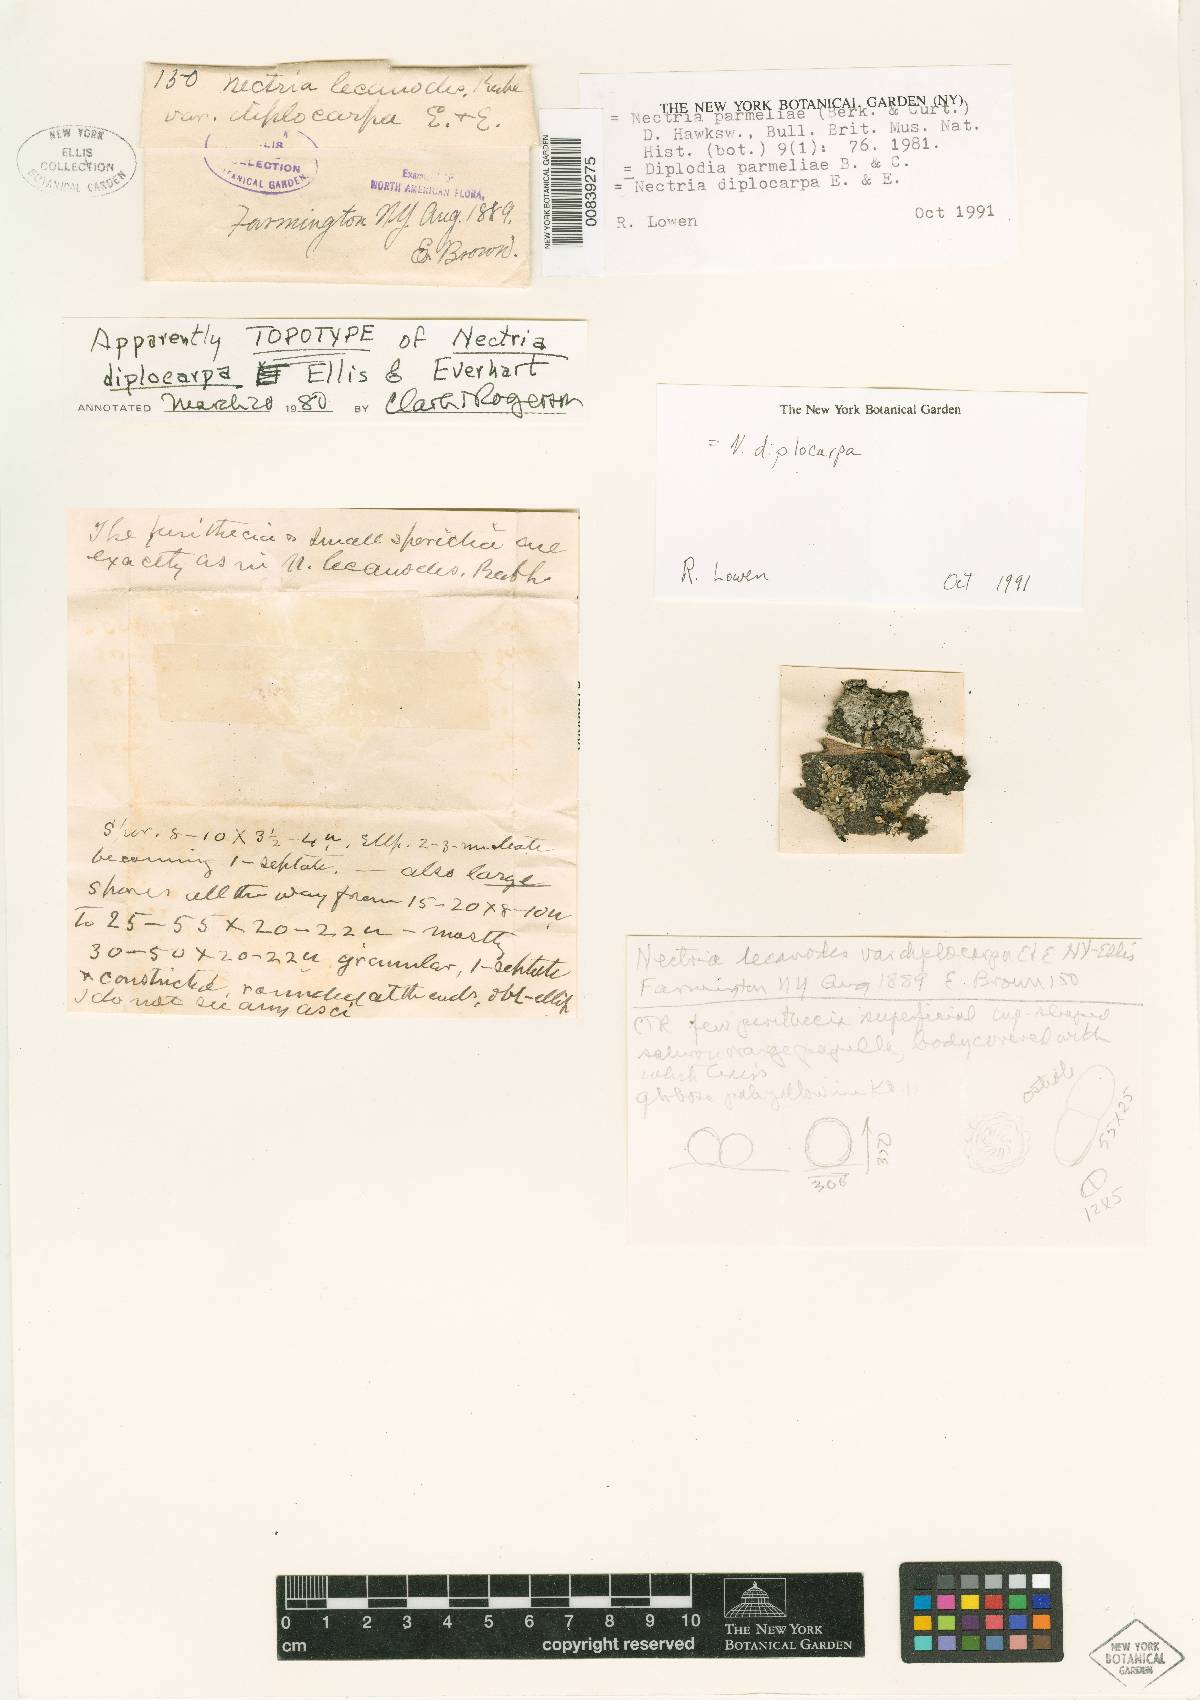 150 Nectria lecanodes, Rabe
var. diplocarpa E. & E.
NEW YORK
ELLIS
COLLECTION
BOTANICAL GARDEN
COLLECTION
TANICAL GARDEN
NORTH AMERICAN FLORA,
Farmington N.Y. Aug. 1889.
E. Brown.
NEW YORK BOTANICAL GARDEN
00839275
THE NEW YORK BOTANICAL GARDEN (NY)
= Nectria parmeliae (Berk. & Curt.)
D. Hawksw., Bull. Brit. Mus. Nat.
Hist. (bot.) 9(1): 76. 1981.
= Diplodia parmeliae B. & C.
= Nectria diplocarpa E. & E.
R. Lowen Oct 1991
Apparently TOPOTYPE of Nectria
diplocarpa Ellis & Everhart
ANNOTATED March 20 1980 BY Clark T Rogerson
The New York Botanical Garden
= N. diplocarpa
R. Lowen Oct 1991
The perithecia & small sporidia are
exactly as in N. lecanodes. Rabh.
Spor. 8-10 X 3½-4u. Ellp. 2-3-nucleate
becoming 1-septate. — also large
spores all the way from 15-20 x 8-10u
to 25-55 x 20-22u - mostly
30-50 x 20-22u granular, 1-septate
& constricted, rounded at the ends, obl-ellip
I do not see any asci
Nectria lecanodes var diplocarpa E & E NY-Ellis
Farmington NY Aug 1889 E. Brown 150
CTR few perithecia superficial cup-shaped
salmon orange papilla, body covered with
globose pale yellow in KOH
ostiole
55x25
350
308
12x5
0 1 2 3 4 5 6 7 8 9 10
cm copyright reserved
THE NEW YORK
BOTANICAL GARDEN
NEW YORK
BOTANICAL
GARDEN